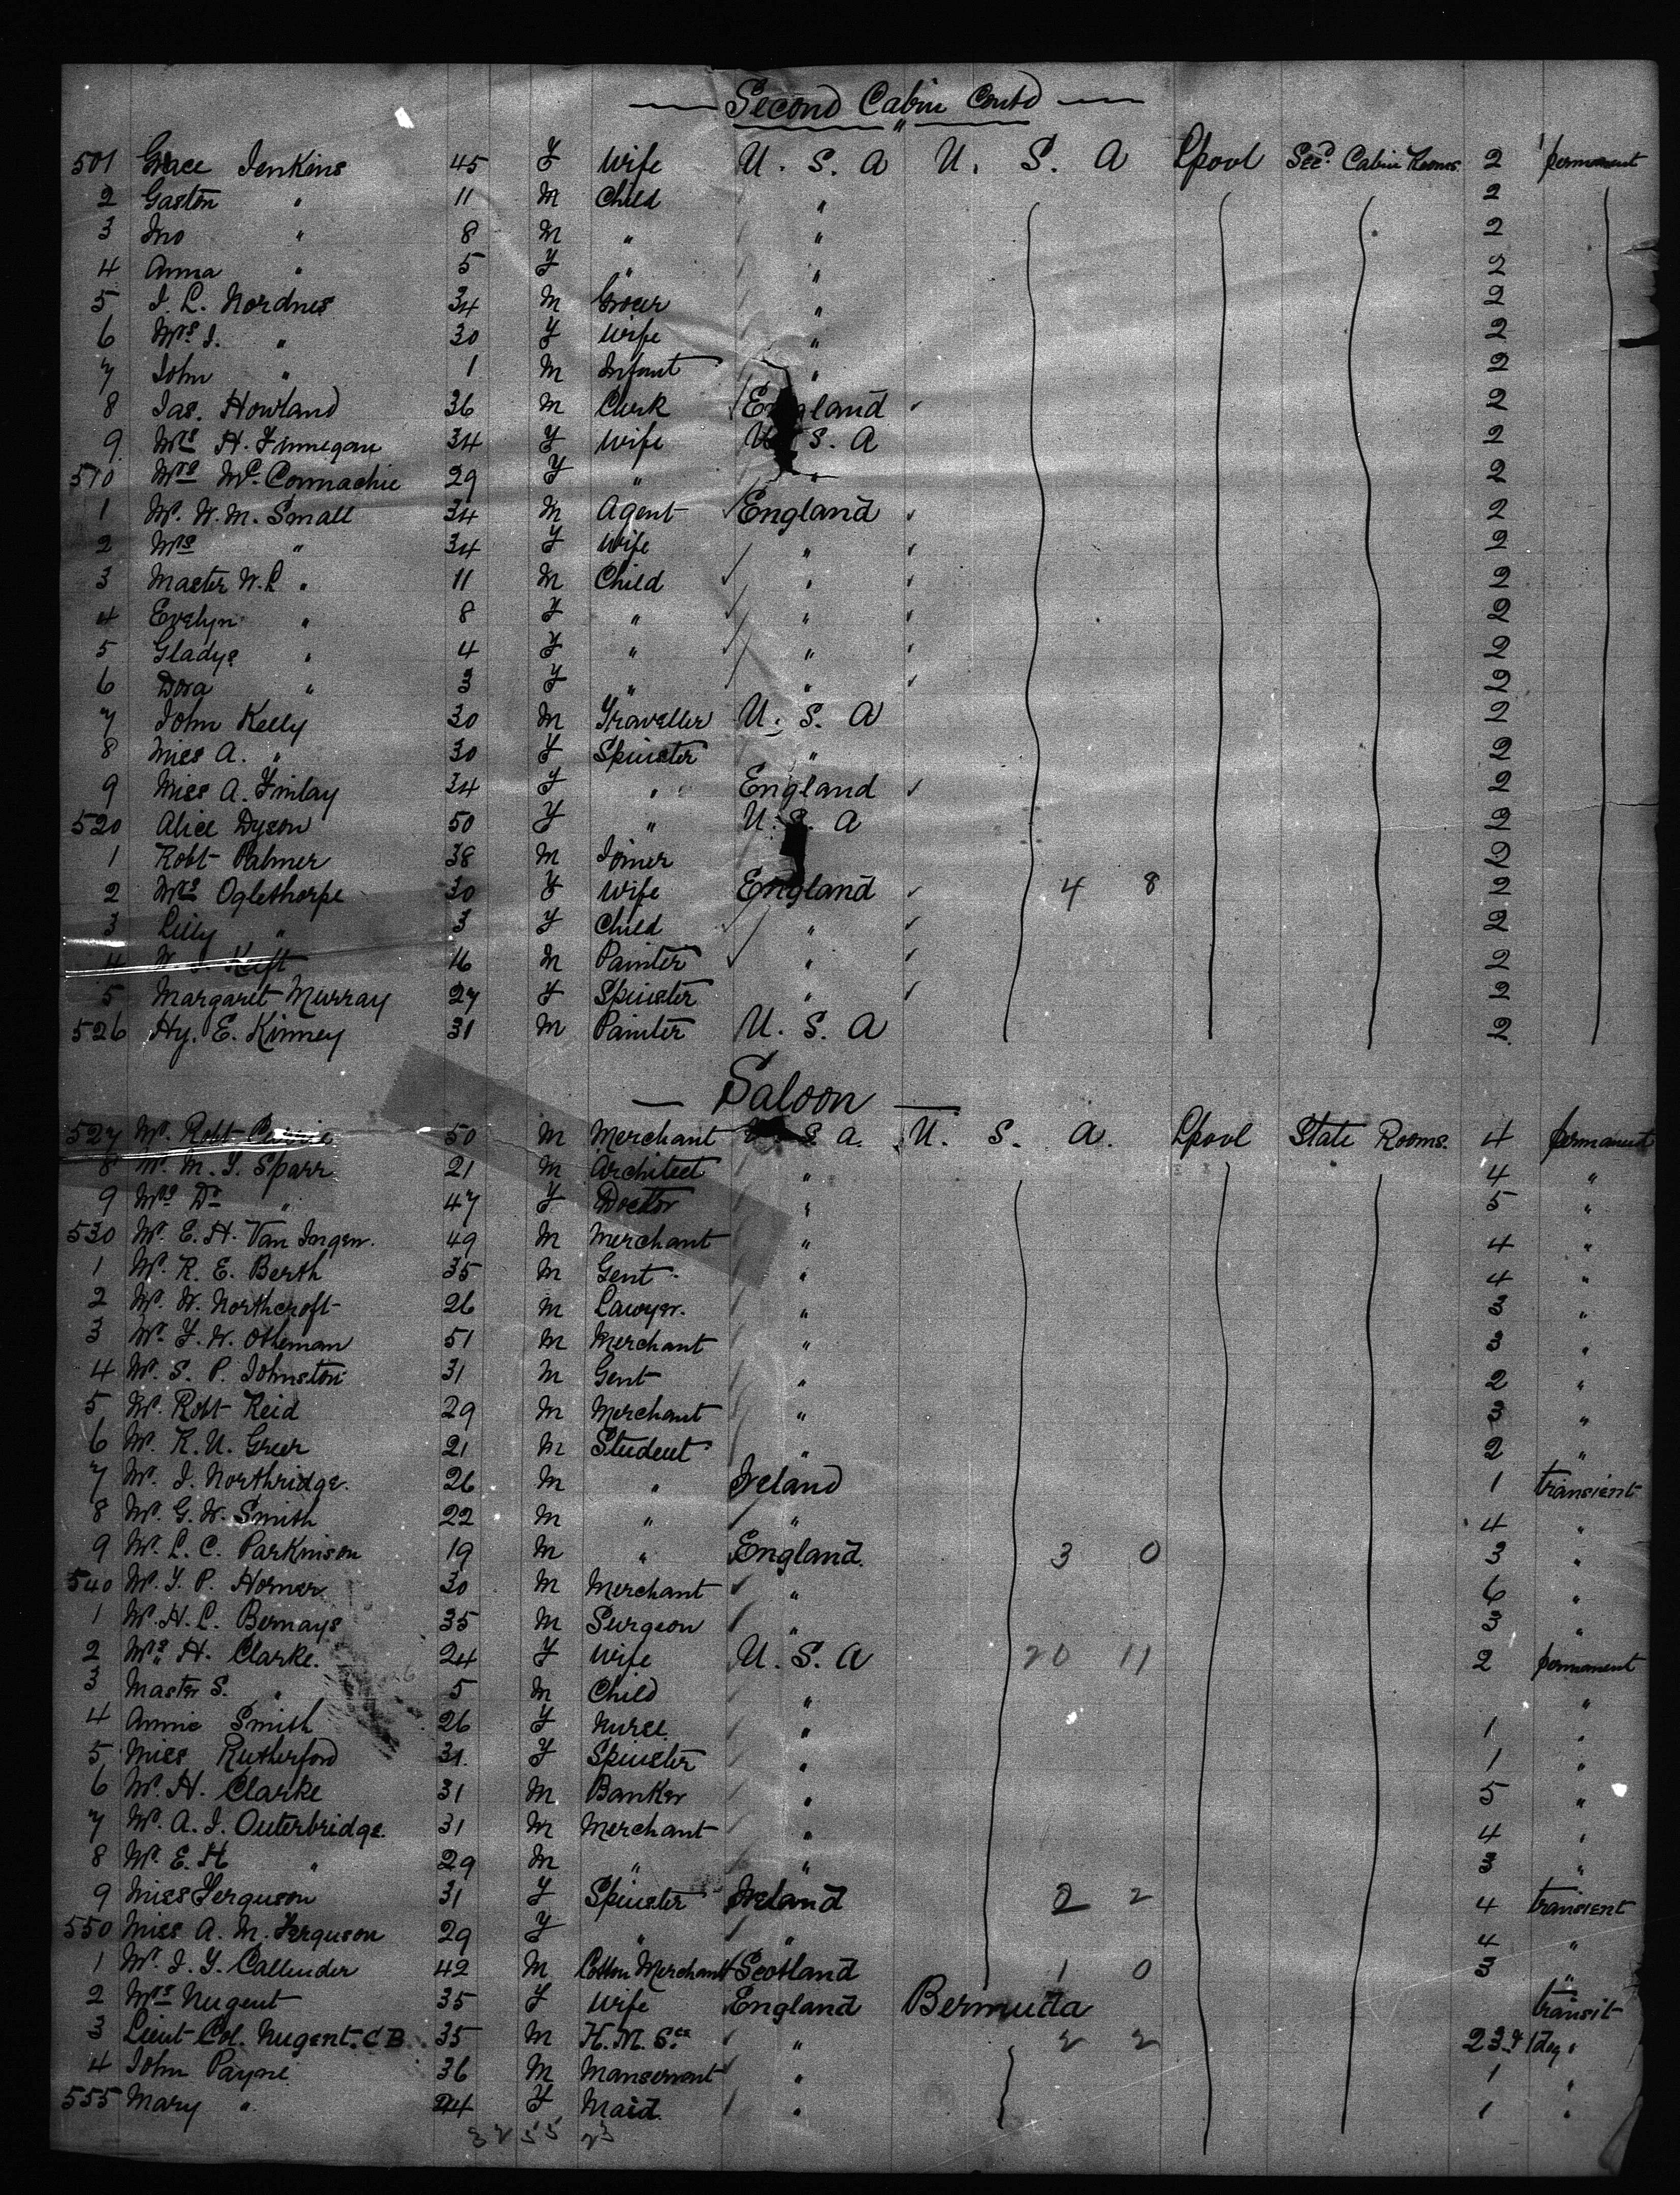 Second Cabin Contd
501 Grace Jenkins 45 F Wife U. S. A U. S. A Lpool Secd. Cabin Rooms. 2 permanent
2 Gaston " 11 M Child " 2
3 Jno " 8 M " " 2
4 Anna " 5 F " " 2
5 J. L. Nordnes 34 M Grocer " 2
6 Mrs J. " 30 F Wife " 2
7 John " 1 M Infant " 2
8 Jas. Howland 36 M Clerk England 2
9 Mrs H. Finnegan 34 F Wife U. S. A 2
510 Mrs Mc. Connachie 29 F " " 2
1 Mr. W. M. Small 34 M Agent England 2
2 Mrs " 34 F Wife " 2
3 Master W. L " 11 M Child " 2
4 Evelyn " 8 F " " 2
5 Gladys " 4 F " " 2
6 Dora " 3 F " " 2
7 John Kelly 30 M Traveller U. S. A 2
8 Miss A. " 30 F Spinster " 2
9 Miss A. Finlay 34 F " England 2
520 Alice Dyson 50 F " U. S. A 2
1 Robt Palmer 38 M Joiner 2
2 Mrs Oglethorpe 30 F Wife England 4 8 2
3 Lilly " 3 F Child " 2
4 W. Kift 16 M Painter " 2
5 Margaret Murray 27 F Spinster " 2
526 Hy. E. Kinney 31 M Painter U. S. A 2
Saloon
527 Mr. Robt 50 M Merchant U. S. A. U. S. A. Lpool State Rooms. 4 permanent
8 Mr. M. F. Sparr 21 M Architect " 4 "
9 Mrs Dr " 47 F Doctor " 5 "
530 Mr. E. H. Van Ingen. 49 M Merchant " 4 "
1 Mr. R. E. Berth 35 M Gent " 4 "
2 Mr. W. Northcroft 26 M Lawyer. " 3 "
3 Mr. F. W. Otheman 51 M Merchant " 3 "
4 Mr. S. P. Johnston 31 M Gent " 2 "
5 Mr. Robt Reid 29 M Merchant " 3 "
6 Mr. R. U. Greer 21 M Student " 2 "
7 Mr. J. Northridge. 26 M " Ireland 1 transient
8 Mr. G. W. Smith 22 M " " 4 "
9 Mr. L. C. Parkinson 19 M " England. 3 0 3 "
540 Mr. F. P. Horner 30 M Merchant " 6 "
1 Mr. H. L. Bernays 35 M Surgeon " 3 "
2 Mrs. H. Clarke. 24 F Wife U. S. A 20 11 2 permanent
3 Master S. " 5 M Child " "
4 Annie Smith 26 F Nurse " 1 "
5 Miss Rutherford 31. F Spinster " 1 "
6 Mr. H. Clarke 31 M Banker " 5 "
7 Mr. A. J. Outerbridge. 31 M Merchant " 4 "
8 Mr. E. H " 29 M " " 3 "
9 Miss Ferguson 31 F Spinster Ireland 2 2 4 transient
550 Miss A. M. Ferguson 29 F " " 4 "
1 Mr. J. F. Callender 42 M Cotton Merchant Scotland 1 0 3 "
2 Mrs Nugent 35 F Wife England Bermuda transit
3 Lieut Col. Nugent. C B. 35 M H. M. Sce " 2 2 "
4 John Payne 36 M Manservant " 1 "
555 Mary " 24 F Maid. " 1 "